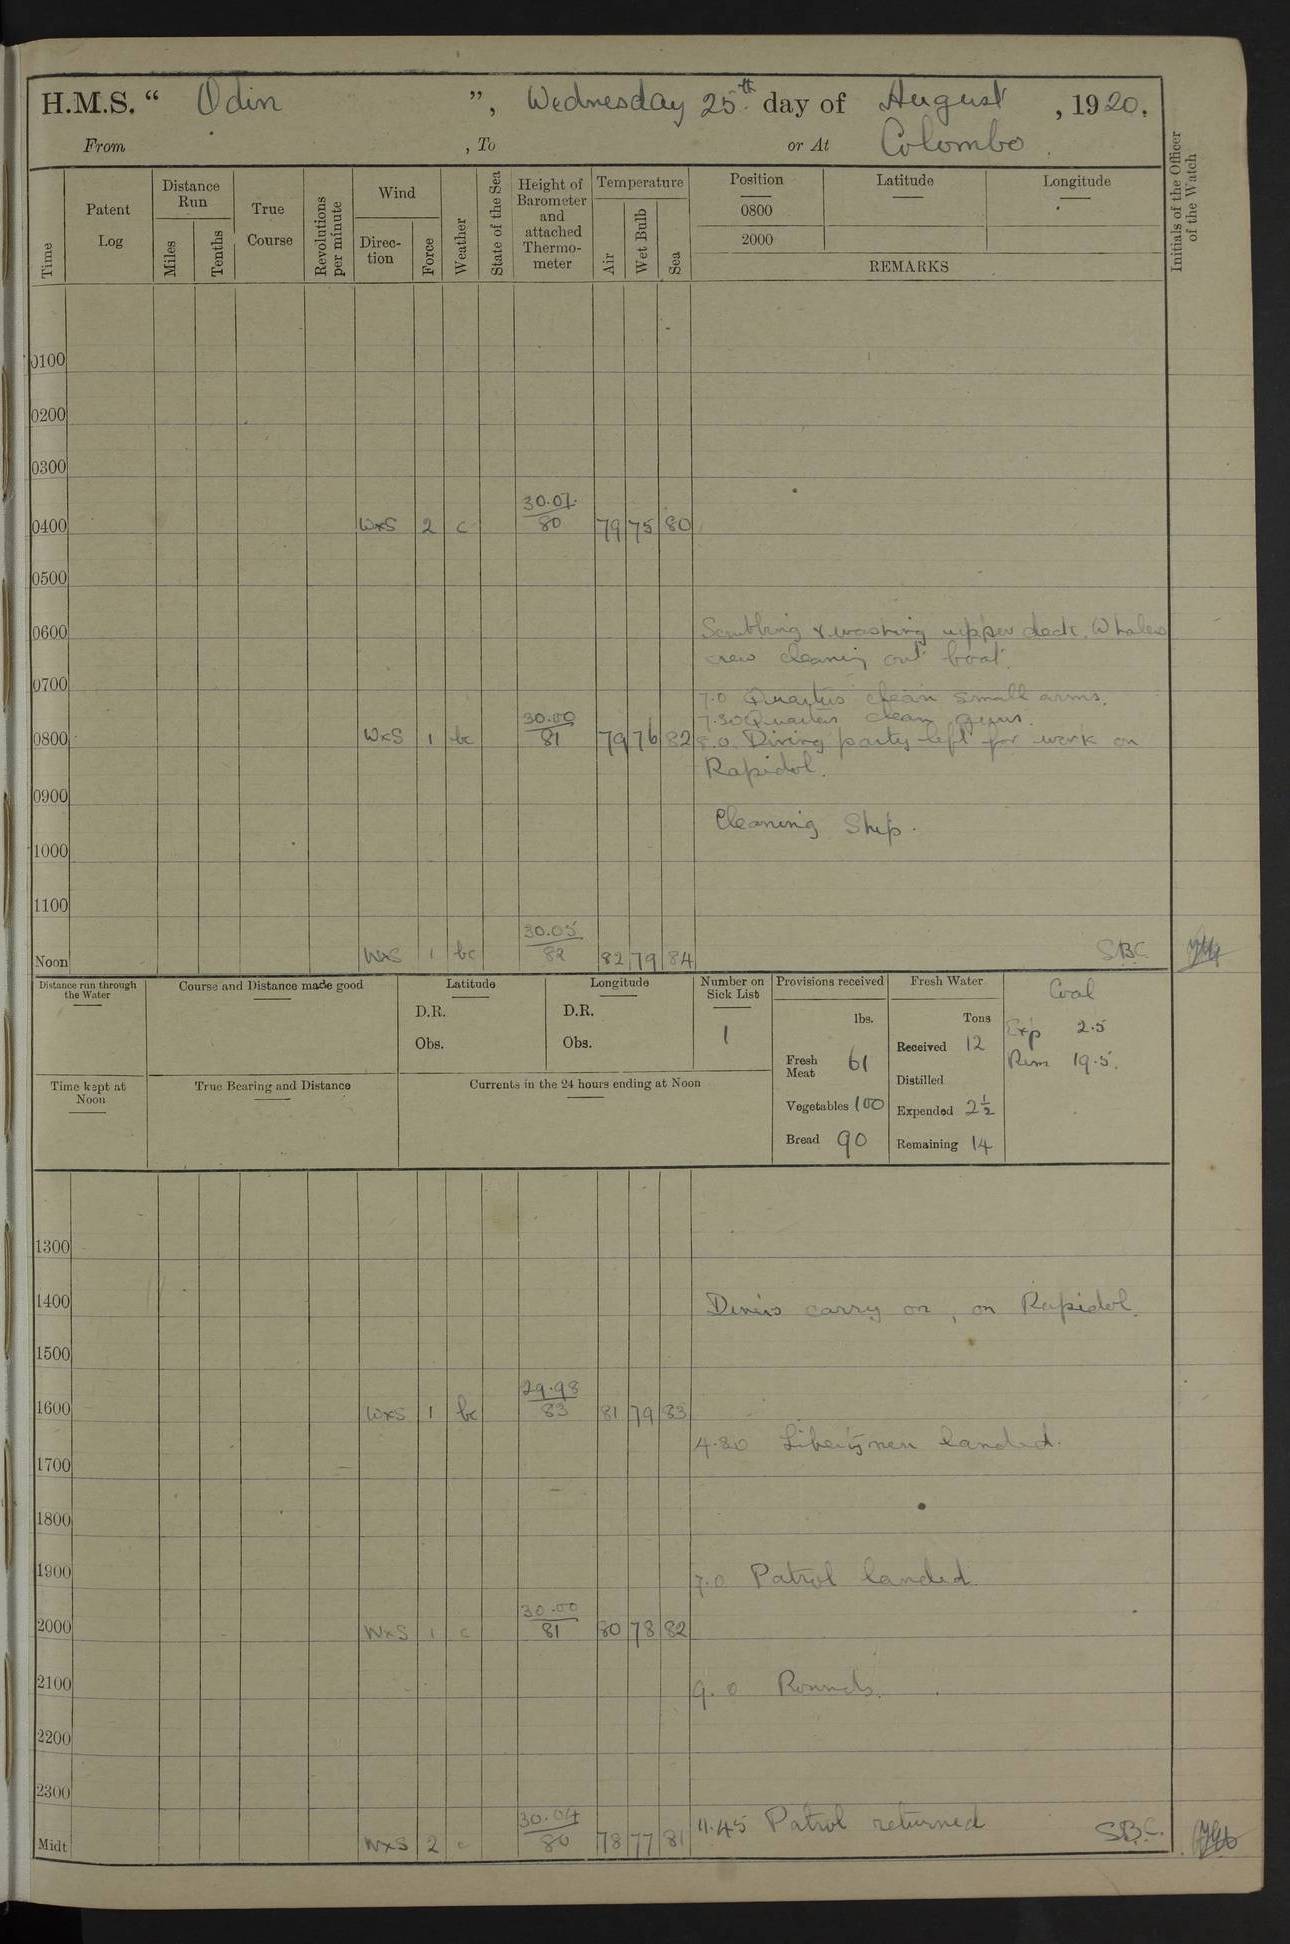 H.M.S. “ Odin ”, Wednesday 25th day of August, 1920.
From , To or At Colombo.
Time
Patent Log
Distance Run
Miles
Tenths
True Course
Revolutions per minute
Wind
Direc-tion
Force
Weather
State of the Sea
Height of Barometer and attached Thermo-meter
Temperature
Air
Wet Bulb
Sea
Position Latitude Longitude
0800
2000
REMARKS
Initials of the Officer of the Watch
0100
0200
0300
30.01
0400 WxS 2 c 80 79 75 80
0500
0600 Scrubbing & washing upper deck. Whalers
crew cleaning out boat.
0700 7.0 Quarters clean small arms.
30.00 7.30 Quarters clean guns.
0800 WxS 1 bc 81 79 76 82 8.0 Diving party left for work on
Rapidol.
0900
Cleaning Ship.
1000
1100
30.05
Noon WxS 1 bc 82 82 79 84 SBC
Distance run through the Water
Course and Distance made good
Latitude
D.R.
Obs.
Longitude
D.R.
Obs.
Number on Sick List
1
Provisions received
lbs.
Fresh Meat 61
Vegetables 100
Bread 90
Fresh Water
Tons
Received 12
Distilled
Expended 2½
Remaining 14
Coal
Exp 2.5
Rem 19.5.
Time kept at Noon
True Bearing and Distance
Currents in the 24 hours ending at Noon
1300
1400 Divers carry on, on Rapidol.
1500
29.98
1600 WxS 1 bc 83 81 79 83
4.30 Libertymen landed.
1700
1800
1900 7.0 Patrol landed
30.00
2000 WxS 1 c 81 80 78 82
2100 9.0 Rounds.
2200
2300
30.04 11.45 Patrol returned
Midt WxS 2 c 80 78 77 81 SBC.